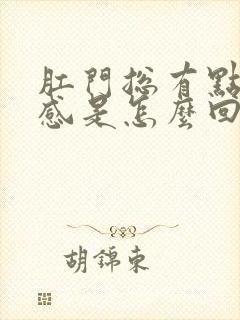 肛門總有點
感是怎麼回
胡錦東